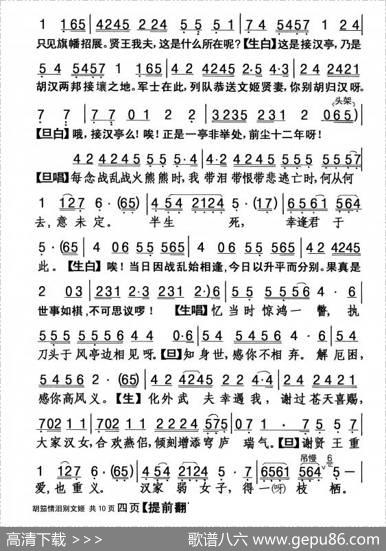 1 165 4245 224 221 2 7 5457 1 24
只见旗幡招展。贤王我夫，这是什么所在呢？【生白】这是接汉亭，乃是
5 4 5457 1 165 4245 1 2·3 24 2421
胡汉两邦接壤之地。军士在此，列队恭送文姬贤妻，你别胡归汉呀。
头架
7 7 7702 01 2 2 3235 231 2 0(65)
【旦白】哦，接汉亭么！唉！正是一亭非举处，前尘十二年呀！
4 2 4245 4245 555 555 5 5557
【旦唱】每念战乱战火熊熊时，我带泪带恨带悲逃亡时，何从何
1 127 6·(65) 4 54 2124 5·(17) 6561 564
去，意未定。半生死，幸逢君于
5·(65) 4 06 55 565 4 06 55 565 42 4245
此。【生白】唉！当日因战乱始相逢，今日以升平而分别。果真是
2 03 231 231 2·6 55 5556 4·6
世事如棋，不可思议啰！【生唱】忆当时惊鸿一瞥，执
5456 5 4 5424 2 (54) 55 5556 4·6
刀头于风亭边相见呀。【旦】知身世，感你不相弃。解厄困，
5456 2·(65) 42 4245 22 2·4 24 2421
感你高风义。【生】化外武夫幸遇我，谢过苍天喜赐，
702 11 702 11 702 11 2 4 5·1 2 4245
大家汉女，合欢燕侣，倾刻增添穹庐瑞气。【旦】谢贤王重
吊慢
1 127 6·(65) 4 54 2124 5·7 6561 564 5 —
爱，也重义。汉家弱女子，得一(吖)枝栖。
胡笳情泪别文姬 共10页 四页【提前翻
高清下载 >>> 歌谱八六 www.gepu86.com